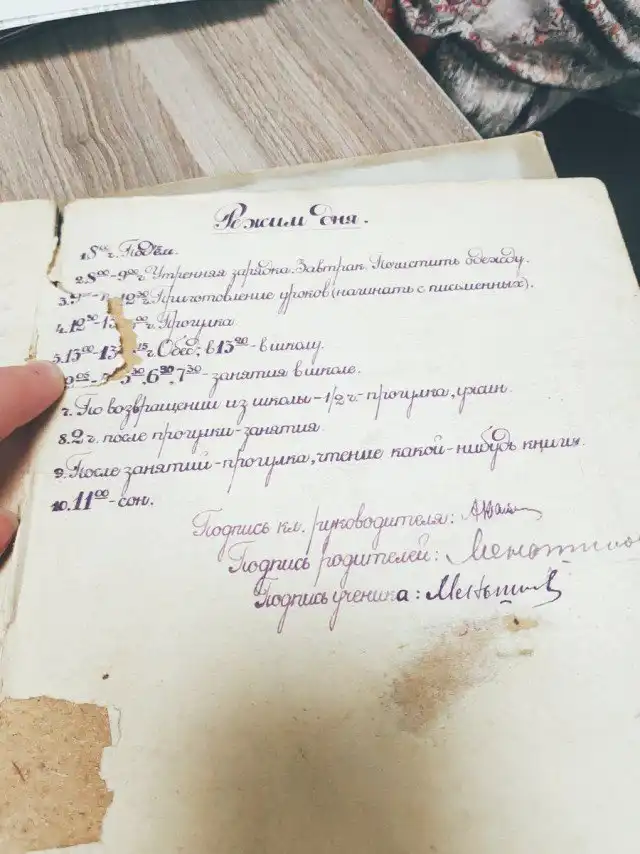 Режим дня.
1.8⁰⁰ч. Подъём.
2.8⁰⁰-9⁰⁰ч Утренняя зарядка. Завтрак. Почистить одежду.
3. 12³⁰ч. Приготовление уроков (начинать с письменных).
4.12³⁰-13 Прогулка.
5.13⁰⁰-13 ч. Обед; в 13²⁰-в школу.
6³⁰, 7³⁰-занятия в школе.
7. По возвращении из школы-1/2 ч-прогулка, ужин.
8.2 ч. после прогулки-занятия.
9. После занятий-прогулка, чтение какой-нибудь книги.
10.11⁰⁰-сон.
Подпись кл. руководителя:
Подпись родителей:
Подпись ученика: Меньшиков